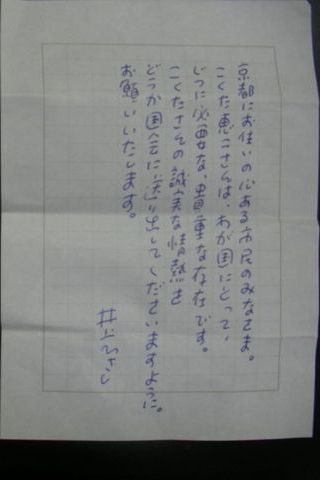 京都にお住いの心ある市民のみなさま。
こくた恵二さんは、わが国にとって、
じつに必要な、貴重な存在です。
こくたさんの誠実な情熱を
どうか国会に送り出してくださいますように。
お願いいたします。
井上ひさし